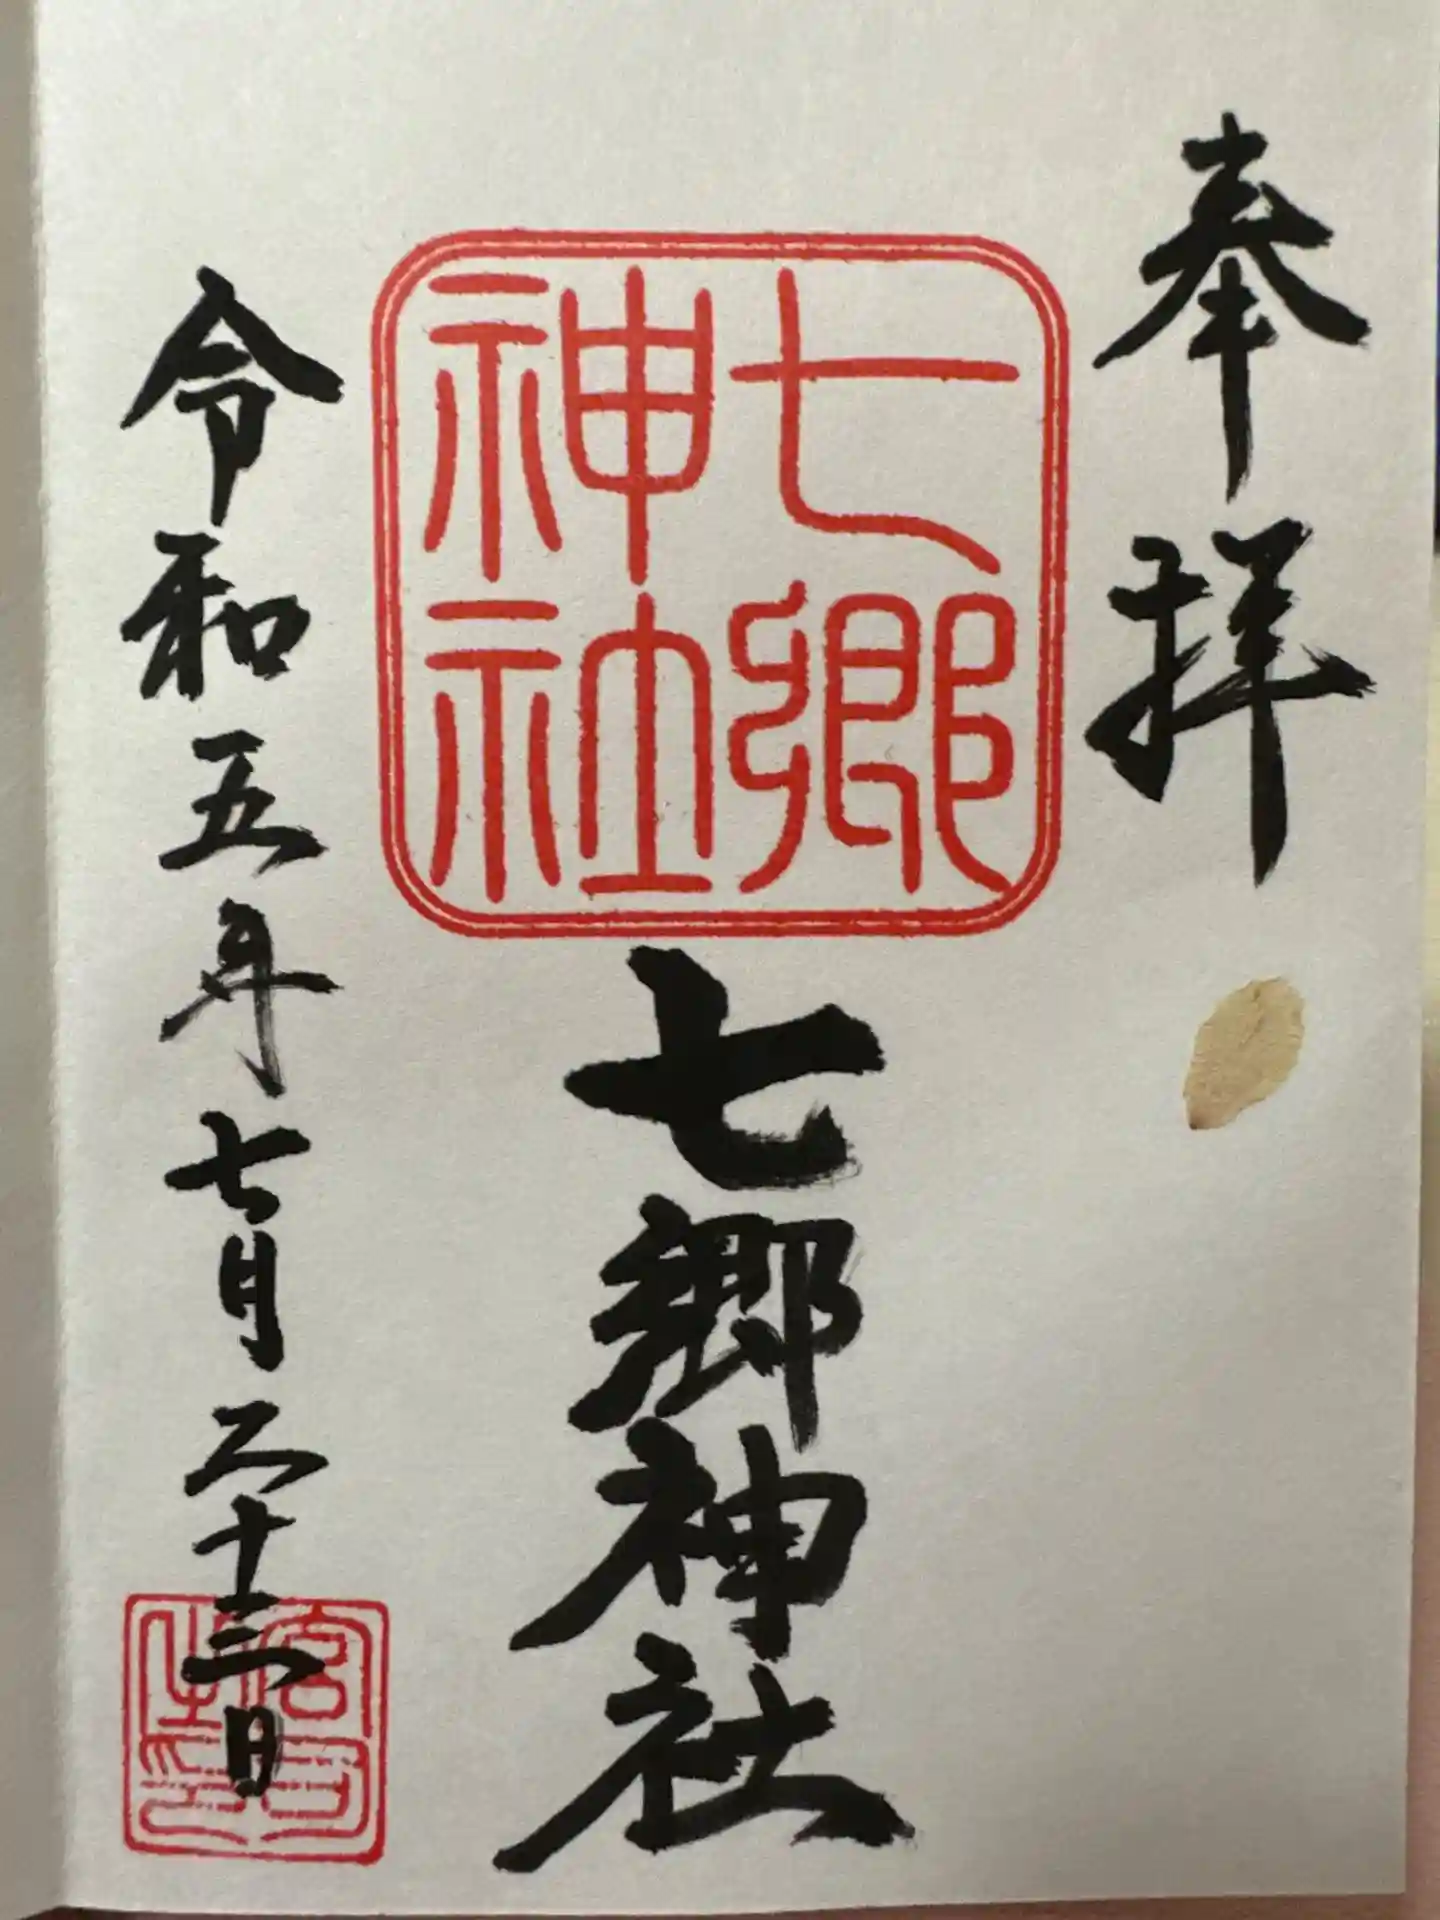 奉拝
七郷
神社
七郷神社
令和五年七月二十三日
宮司
之印